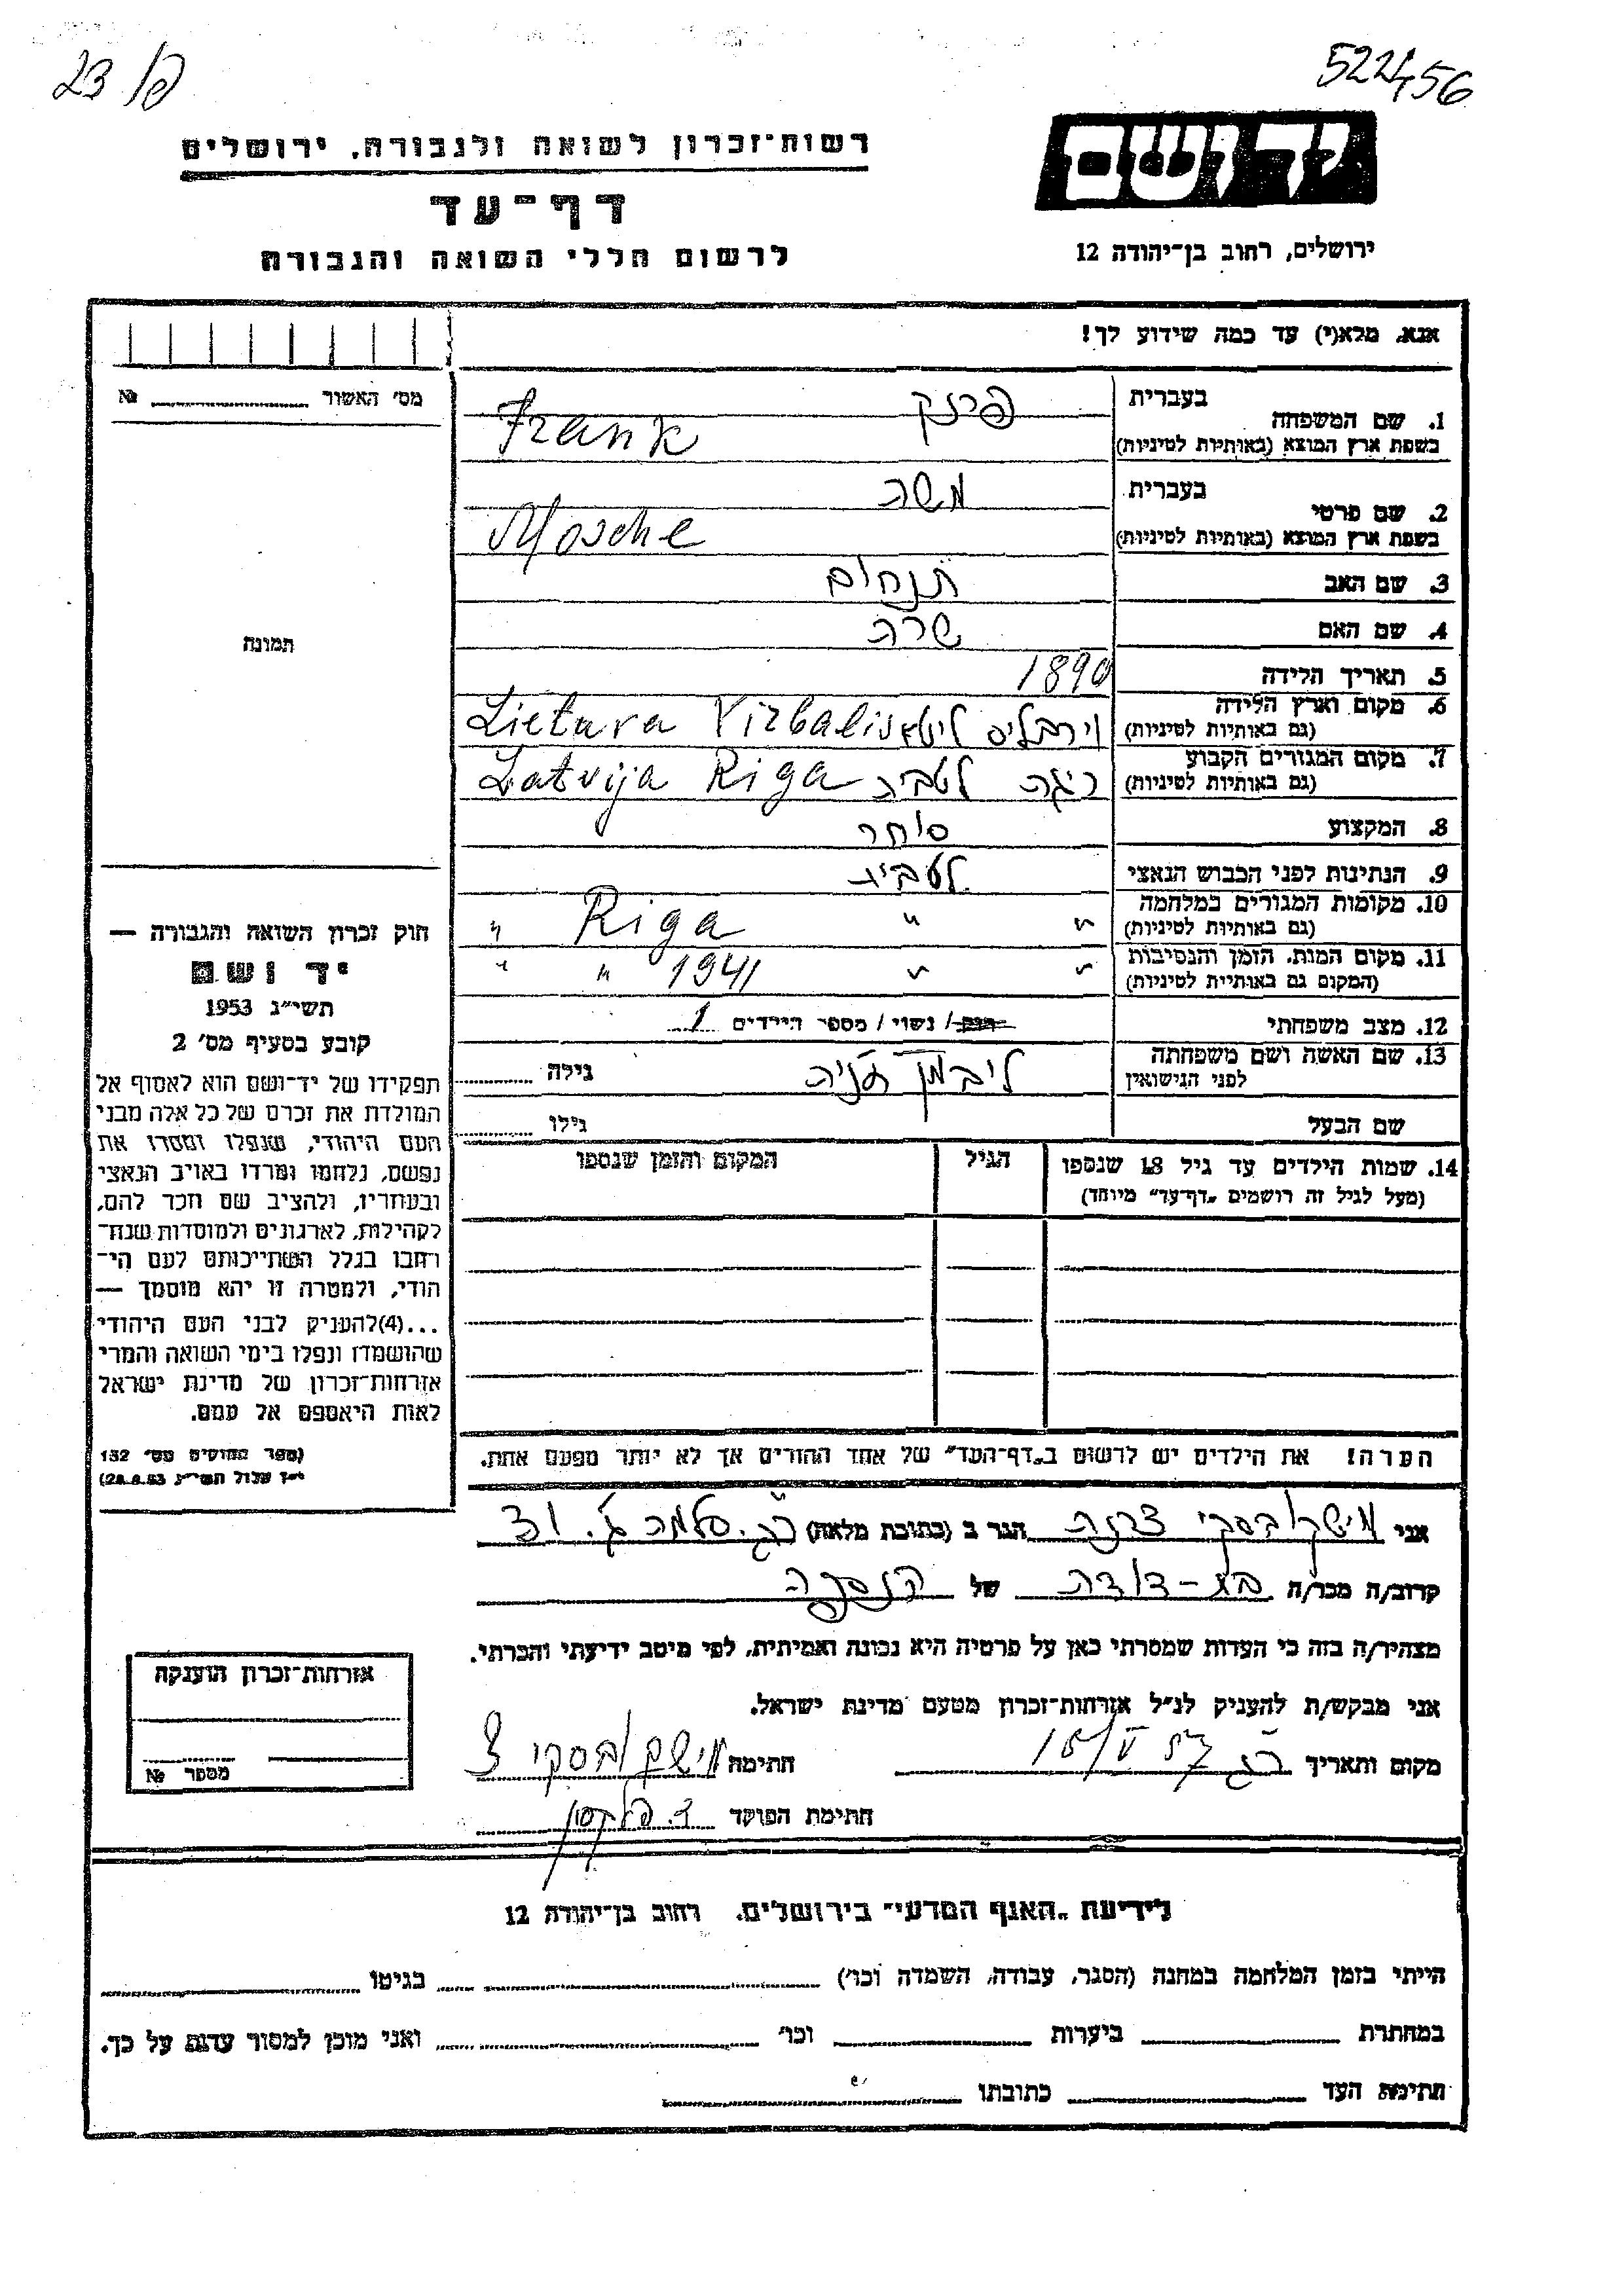 23 פ/
522456
רשות־זכרון לשואה ולגבורה, ירושלים
דף־עד
לרשום חללי השואה והגבורה
יד ושם
ירושלים, רחוב בן־יהודה 12
אנא, מלא(י) עד כמה שידוע לך!
מס׳ האשור № 
1. שם המשפחה בעברית פרנק
בשפת ארץ המוצא (באותיות לטיניות) Frank
2. שם פרטי בעברית משה
בשפת ארץ המוצא (באותיות לטיניות) Mosche
3. שם האב תנחום
4. שם האם שרה
5. תאריך הלידה 1890
6. מקום וארץ הלידה (גם באותיות לטיניות) וירבליס ליטא Lietuva Virbalis
7. מקום המגורים הקבוע (גם באותיות לטיניות) ריגה לטביה Latvija Riga
8. המקצוע סוחר
9. הנתינות לפני הכבוש הנאצי לטבית
10. מקומות המגורים במלחמה (גם באותיות לטיניות) " " Riga "
11. מקום המות, הזמן והנסיבות (המקום גם באותיות לטיניות) " " 1941 " "
12. מצב משפחתי רווק / נשוי / מספר הילדים 1
13. שם האשה ושם משפחתה לפני הנישואין ליבמן חניה גילה
שם הבעל גילו
14. שמות הילדים עד גיל 18 שנספו (מעל לגיל זה רושמים „דף־עד" מיוחד) הגיל המקום והזמן שנספו
תמונה
חוק זכרון השואה והגבורה —
יד ושם
תשי״ג 1953
קובע בסעיף מס׳ 2
תפקידו של יד־ושם הוא לאסוף אל
המולדת את זכרם של כל אלה מבני
העם היהודי, שנפלו ומסרו את
נפשם, נלחמו ומרדו באויב הנאצי
ובעוזריו, ולהציב שם וזכר להם,
לקהילות, לארגונים ולמוסדות שנח־
רחבו בגלל השתייכותם לעם הי־
הודי, ולמטרה זו יהא מוסמך —
...(4)להעניק לבני העם היהודי
שהושמדו ונפלו בימי השואה והמרי
אזרחות־זכרון של מדינת ישראל
לאות היאספם אל עמם.
(ספר החוקים מס׳ 132
י״ז אלול תשי״ג 28.8.53)
הערה! את הילדים יש לרשום ב„דף־העד" של אחד ההורים אך לא יותר מפעם אחת.
אני מישקובסקי הגר ב (כתובת מלאה) ר״ג.
קרוב/ה מכר/ה בת-דודה של הנספה
מצהיר/ה בזה כי העדות שמסרתי כאן על פרטיה היא נכונה ואמיתית, לפי מיטב ידיעתי והכרתי.
אני מבקש/ת להעניק לנ״ל אזרחות־זכרון מטעם מדינת ישראל.
מקום ותאריך ר״ג 15/V 57 חתימה מישקובסקי צ
חתימת הפוקד
אזרחות־זכרון הוענקה
מספר №
לידיעת „האגף המדעי" בירושלים, רחוב בן־יהודה 12
הייתי בזמן המלחמה במחנה (הסגר, עבודה, השמדה וכו׳) בגיטו
במחתרת ביערות וכו׳ ואני מוכן למסור עדות על כך.
חתימת העד כתובתו